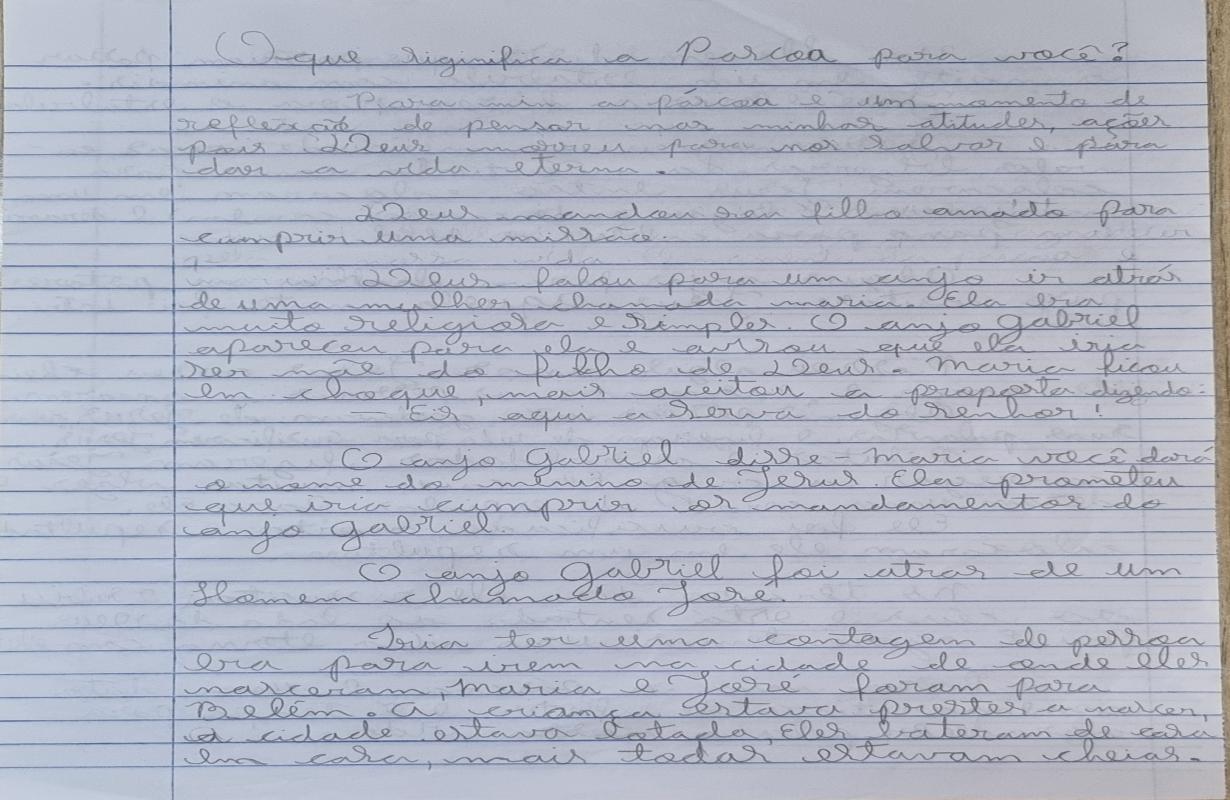 O que siginifica a Pascoa para você?
Para min a páscoa é um momento de
reflexão de pensar nas minhas atitudes, ações
pois Deus morreu para nos salvar e para
dar a vida eterna.
Deus mandou seu filho amado para
cumprir uma missão.
Deus falou para um anjo ir atrás
de uma mulher chamada maria. Ela era
muito religiosa e simples. O anjo Gabriel
apareceu para ela e avisou que ela iria
ser mãe do filho de Deus. Maria ficou
em choque, mais aceitou a proposta dizendo:
— Eis aqui a serva do senhor!
O anjo Gabriel disse - Maria você dará
o nome do menino de Jesus. Ela prometeu
que iria cumprir os mandamentos do
anjo Gabriel.
O anjo Gabriel foi atras de um
Homem chamado José.
Iria ter uma contagem de pessoa
era para irem na cidade de onde eles
nasceram, Maria e José foram para
Belém. A criança estava prestes a nascer,
a cidade estava lotada, Eles bateram de casa
em casa, mais todas estavam cheias.